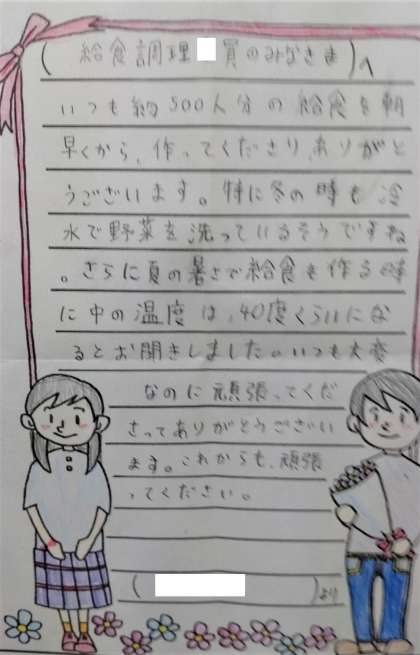 (給食調理 員のみなさま)へ
いつも約500人分の給食を朝
早くから、作ってくださり、ありがと
うございます。特に冬の時も冷
水で野菜を洗っているそうですね
。さらに夏の暑さで給食を作る時
に中の温度は、40度くらいにな
るとお聞きしました。いつも大変
なのに頑張ってくだ
さってありがとうござい
ます。これからも、頑張
ってください。
( )より